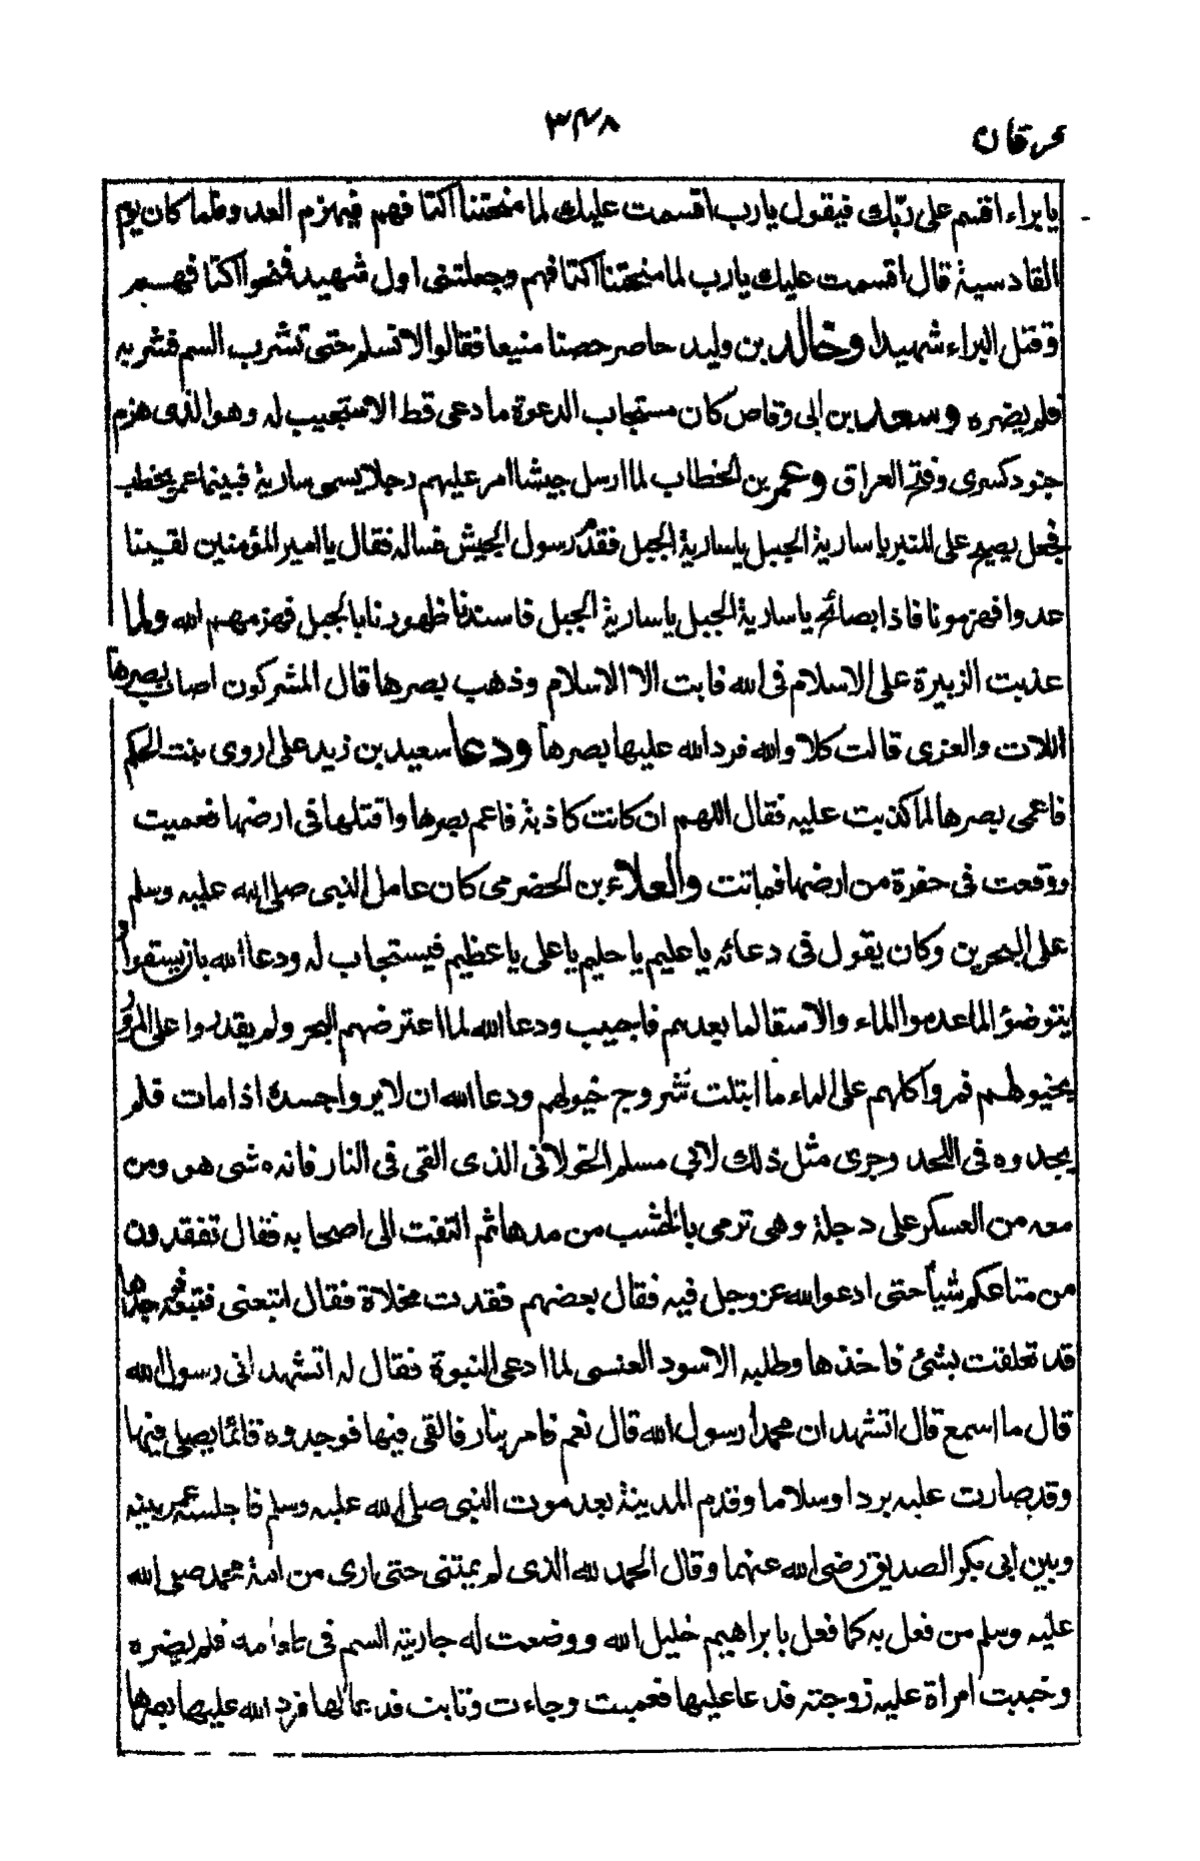 ۳۴۸
عرقان
يا براء اقسم على ربّك فيقول يارب اقسمت عليك لما منحتنا اكتا فهم فيهزم العدو فلما كان يوم
القادسية قال اقسمت عليك يارب لما منحتنا اكتا فهم وجعلتنى اول شهيد فمنحوا اكتا فهم
وقتل البراء شهيدا وخالد بن وليد حاصر حصنا منيعا فقالوا لا نسلم حتى تشرب السم فشربه
فلم يضره وسعد بن ابى وقاص كان مستجاب الدعوة ما دعى قط الا ستجيب له وهو الذى هزم
جنود كسرى وفتح العراق وعمر بن الخطاب لما ارسل جيشا امر عليهم رجلا يسمى سارية فبينما عمر يخطب
فجعل يصيح على المنبر يا سارية الجبل يا سارية الجبل فقدم رسول الجيش فساله فقال يا امير المؤمنين لقينا
عدوا فهزمونا فاذا بصائح يا سارية الجبل يا سارية الجبل فاسندنا ظهورنا بالجبل فهزمهم الله ولما
عذبت الزبيرة على الاسلام فى الله فابت الا الاسلام وذهب بصرها قال المشركون اصاب بصرها
اللات والعزى قالت كلا والله فرد الله عليها بصرها ودعا سعيد بن زيد على اروى بنت الحكم
فاعمى بصرها لما كذبت عليه فقال اللهم ان كانت كاذبة فاعم بصرها واقتلها فى ارضها فعميت
ووقعت فى حفرة من ارضها فماتت والعلاء بن الحضرمى كان عامل النبى صلى الله عليه وسلم
على البحرين وكان يقول فى دعائه يا عليم يا حليم يا على يا عظيم فيستجاب له ودعا الله بان يستقوا و
يتوضؤا لما عدموا الماء والاسقا لما بعدهم فاجيب ودعا الله لما اعترضهم البحر ولم يقدروا على المرور
بخيولهم فمروا كلهم على الماء ما ابتلت شروج خيولهم ودعا الله ان لا يروا جسده اذا مات فلم
يجدوه فى اللحد وجرى مثل ذلك لابي مسلم الخولانى الذى القى فى النار فانه مشى هو ومن
معه من العسكر على دجلة وهى ترمى بالخشب من مدها ثم التفت الى اصحابه فقال تفقدون
من متاعكم شيأ حتى ادعوا الله عز وجل فيه فقال بعضهم فقدت مخلاة فقال اتبعنى فتبعه فوجدها
قد تعلقت بشئ فاخذها وطلبه الاسود العنسى لما ادعى النبوة فقال له اتشهد انى رسول الله
قال ما اسمع قال اتشهد ان محمدا رسول الله قال نعم فامر بنار فالقى فيها فوجدوه قائما يصلى فيها
وقد صارت عليه بردا وسلاما وقدم المدينة بعد موت النبى صلى الله عليه وسلم فاجلسه عمر بينه
وبين ابى بكر الصديق رضى الله عنهما وقال الحمد لله الذى لم يمتنى حتى ارى من امة محمد صلى الله
عليه وسلم من فعل به كما فعل بابراهيم خليل الله ووضعت له جارية السم فى طعامه فلم يضره
وخببت امراة عليه زوجته فدعا عليها فعميت وجاءت وتابت فدعا لها فرد الله عليها بصرها